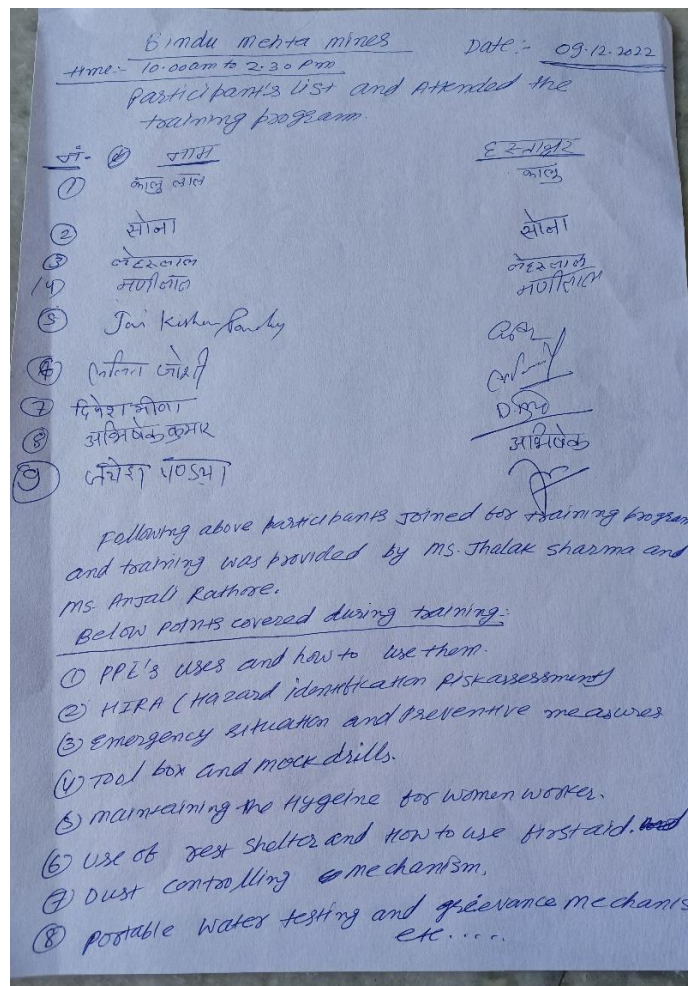 Bindu mehta mines Date:- 09.12.2022
time:- 10.00am to 2.30 pm
Participant's list and Attended the
training program.
नं. नाम हस्ताक्षर
① कालु लाल कालु
② सोना सोना
③ लेहरलाल लेहरलाल
(4) मणीलाल मणीलाल
⑤ Jai Kishan
⑥ ललित जोशी
⑦ दिनेश मीणा
⑧ अभिषेक कुमार अभिषेक
⑨ जयेश पण्ड्या
Following above participants Joined for training program
and training was provided by Ms. Jhalak Sharma and
Ms. Anjali Rathore.
Below Points covered during training:
① PPE's uses and how to use them.
② HIRA (Hazard identification Riskassessment)
③ Emergency situation and Preventive measures
④ Tool box and mock drills.
⑤ maintaining the Hygeine for women worker.
⑥ Use of rest shelter and How to use firstaid.
⑦ Dust controlling mechanism.
⑧ portable water testing and grievance mechanis
etc.....